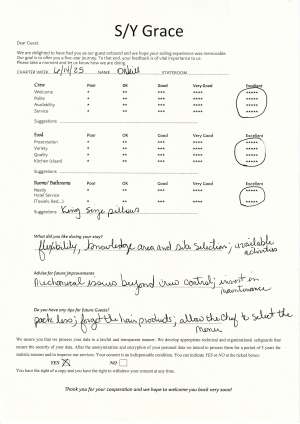 S/Y Grace
Dear Guest,
We are delighted to have had you as our guest onboard and we hope your sailing experience was memorable.
Our goal is to offer you a five-star journey. To that end, your feedback is of vital importance to us.
Please take a moment and let us know how we are doing !
CHARTER WEEK 6/14/25 NAME O'Neill STATEROOM
Crew Poor OK Good Very Good Excellent
Welcome * ** *** **** *****
Polite * ** *** **** *****
Availability * ** *** **** *****
Service * ** *** **** *****
Suggestions
Food Poor OK Good Very Good Excellent
Presentation * ** *** **** *****
Variety * ** *** **** *****
Quality * ** *** **** *****
Kitchen Island * ** *** **** *****
Suggestions
Rooms/ Bathrooms Poor OK Good Very Good Excellent
Needs * ** *** **** *****
Hotel Service
(Towels, Bed...) * ** *** **** *****
Suggestions King Size pillows
What did you like during your stay?
flexibility, knowledge area and site selection; available
activities
Advice for future improvements
Mechanical issues beyond crew control; invest in
maintenance
Do you have any tips for future Guests?
pack less; forget the hair products; allow the Chef to select the
menu
We assure you that we process your data in a lawful and transparent manner. We develop appropriate technical and organizational safeguards that
ensure the security of your data. After the anonymization and encryption of your personal data we intend to process them for a period of 5 years for
statistic reasons and to improve our services. Your consent is an indispensable condition. You can indicate YES or NO at the ticked boxes:
YES X NO
You have the right of a copy and you have the right to withdraw your consent at any time.
Thank you for your cooperation and we hope to welcome you back very soon!